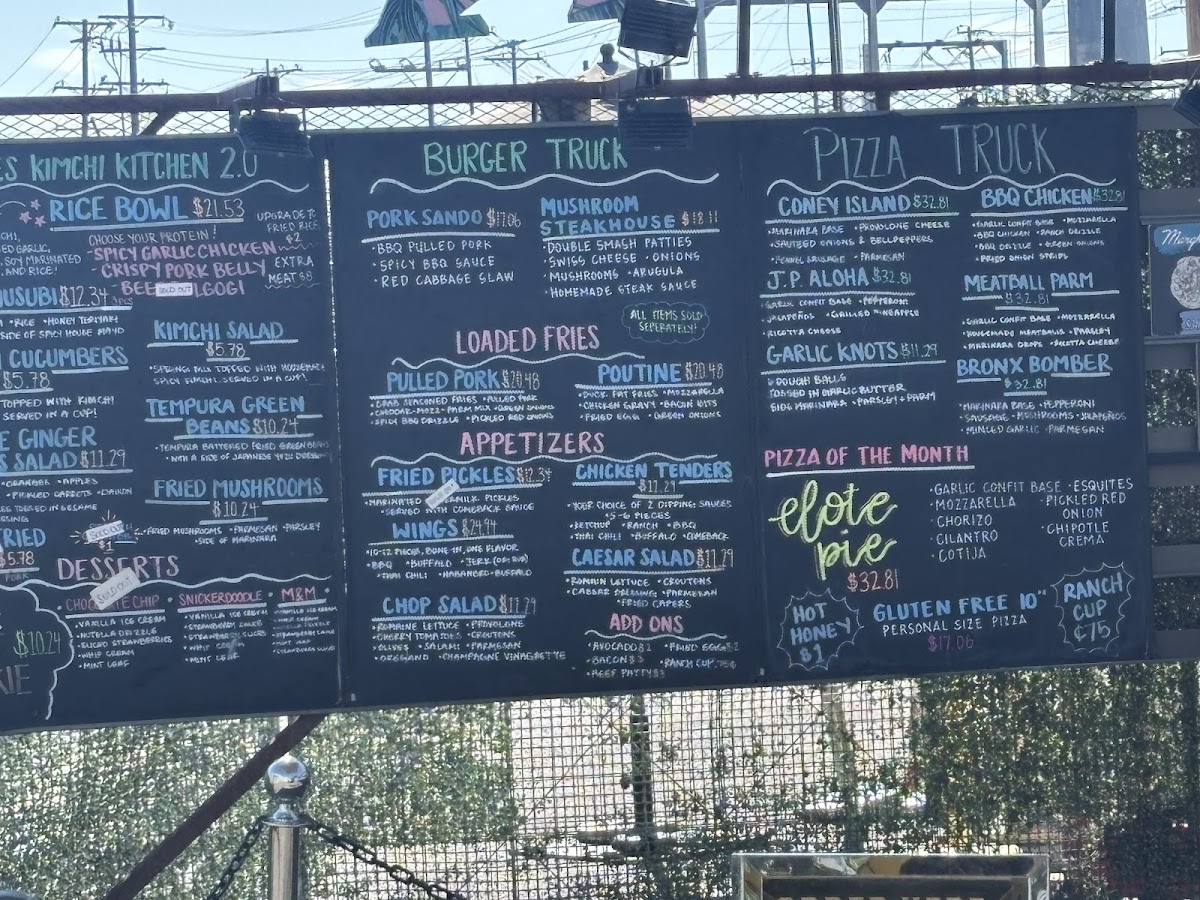 ES KIMCHI KITCHEN 2.0
RICE BOWL $21.53
UPGRADE TO
FRIED RICE
$2
EXTRA
MEAT $8
CHOOSE YOUR PROTEIN!
-SPICY GARLIC CHICKEN
-CRISPY PORK BELLY
SOLD OUT
LGOGI
, SOY MARINATED
, AND RICE!
USUBI $12.34
• RICE • HONEY TERIYAKI
SIDE OF SPICY HOUSE MAYO
CUCUMBERS
$5.78
TOPPED WITH KIMCHI
SERVED IN A CUP!
GINGER
SALAD $11.29
• ORANGE • APPLES
• PICKLED CARROTS • DAIKON
TOSSED IN SESAME
RIED
$5.78
KIMCHI SALAD
$5.78
SPICY KIMCHI. SERVED IN A CUP!
TEMPURA GREEN
BEANS $10.24
• TEMPURA BATTERED FRIED GREEN BEANS
WITH A SIDE OF JAPANESE YUZU
FRIED MUSHROOMS
$10.24
• FRIED MUSHROOMS • PARMESAN • PARSLEY
• SIDE OF MARINARA
SOLD OUT
$1
DESSERTS
SOLD OUT
$10.24
KIE
CHIP
• VANILLA ICE CREAM
• NUTELLA DRIZZLE
• SLICED STRAWBERRIES
• WHIP CREAM
• MINT LEAF
SNICKERDOODLE
• VANILLA ICE CREAM
• STRAWBERRY SAUCE
• WHIP
• MINT LEAF
M&M
BURGER TRUCK
PORK SANDO $17.06
• BBQ PULLED PORK
• SPICY BBQ SAUCE
• RED CABBAGE SLAW
MUSHROOM
STEAKHOUSE $18.11
• DOUBLE SMASH PATTIES
• SWISS CHEESE • ONIONS
• MUSHROOMS • ARUGULA
• HOMEMADE STEAK SAUCE
ALL ITEMS SOLD
SEPERATELY!
LOADED FRIES
PULLED PORK $20.48
• CRAB SEASONED FRIES • PULLED PORK
• CHEDDAR-MOZZ-PARM MIX • GREEN ONIONS
• SPICY BBQ DRIZZLE • PICKLED RED ONIONS
POUTINE $20.48
• DUCK FAT FRIES • MOZZARELLA
• CHICKEN GRAVY • BACON BITS
• FRIED EGG • GREEN ONIONS
APPETIZERS
FRIED PICKLES $12.34
• MARINATED MILK PICKLES
• SERVED WITH COMEBACK SAUCE
CHICKEN TENDERS
$17.29
• YOUR CHOICE OF 2 DIPPING SAUCES
• 5-6 PIECES
• KETCHUP • RANCH • BBQ
• THAI CHILI • BUFFALO • COMEBACK
WINGS $24.94
• 10-12 PIECES, BONE IN, ONE FLAVOR
• BBQ • BUFFALO • JERK (DRY RUB)
• THAI CHILI • HABANERO-BUFFALO
CAESAR SALAD $11.29
• ROMAIN LETTUCE • CROUTONS
• CAESAR DRESSING • PARMESAN
• FRIED CAPERS
CHOP SALAD $11.29
• ROMAINE LETTUCE • PROVOLONE
• CHERRY TOMATOES • CROUTONS
• OLIVES • SALAMI • PARMESAN
• OREGANO • CHAMPAGNE VINAGRETTE
ADD ONS
• AVOCADO $2 • FRIED EGG $2
• BACON $3 • RANCH CUP .75¢
• BEEF PATTY $3
PIZZA TRUCK
CONEY ISLAND $32.81
• MARINARA BASE • PROVOLONE CHEESE
• SAUTEED ONIONS & BELLPEPPERS
• FENNEL SAUSAGE • PARMESAN
BBQ CHICKEN $32.81
• GARLIC CONFIT BASE • MOZZARELLA
• BBQ CHICKEN • RANCH DRIZZLE
• BBQ DRIZZLE • GREEN ONIONS
• FRIED ONION STRIPS
J.P. ALOHA $32.81
GARLIC CONFIT BASE • PEPPERONI
• JALAPEÑOS • GRILLED PINEAPPLE
RICOTTA CHEESE
MEATBALL PARM
$32.81
• GARLIC CONFIT BASE • MOZZARELLA
• HOMEMADE MEATBALLS • PARSLEY
• MARINARA DROPS • RICOTTA CHEESE
GARLIC KNOTS $11.29
6 DOUGH BALLS
TOSSED IN GARLIC BUTTER
SIDE MARINARA • PARSLEY + PARM
BRONX BOMBER
$32.81
• MARINARA BASE • PEPPERONI
• SAUSAGE • MUSHROOMS • JALAPEÑOS
• MINCED GARLIC • PARMESAN
PIZZA OF THE MONTH
elote
pie
$32.81
• GARLIC CONFIT BASE • ESQUITES
• MOZZARELLA • PICKLED RED
• CHORIZO ONION
• CILANTRO • CHIPOTLE
• COTIJA CREMA
HOT
HONEY
$1
GLUTEN FREE 10"
PERSONAL SIZE PIZZA
$17.06
RANCH
CUP
¢75